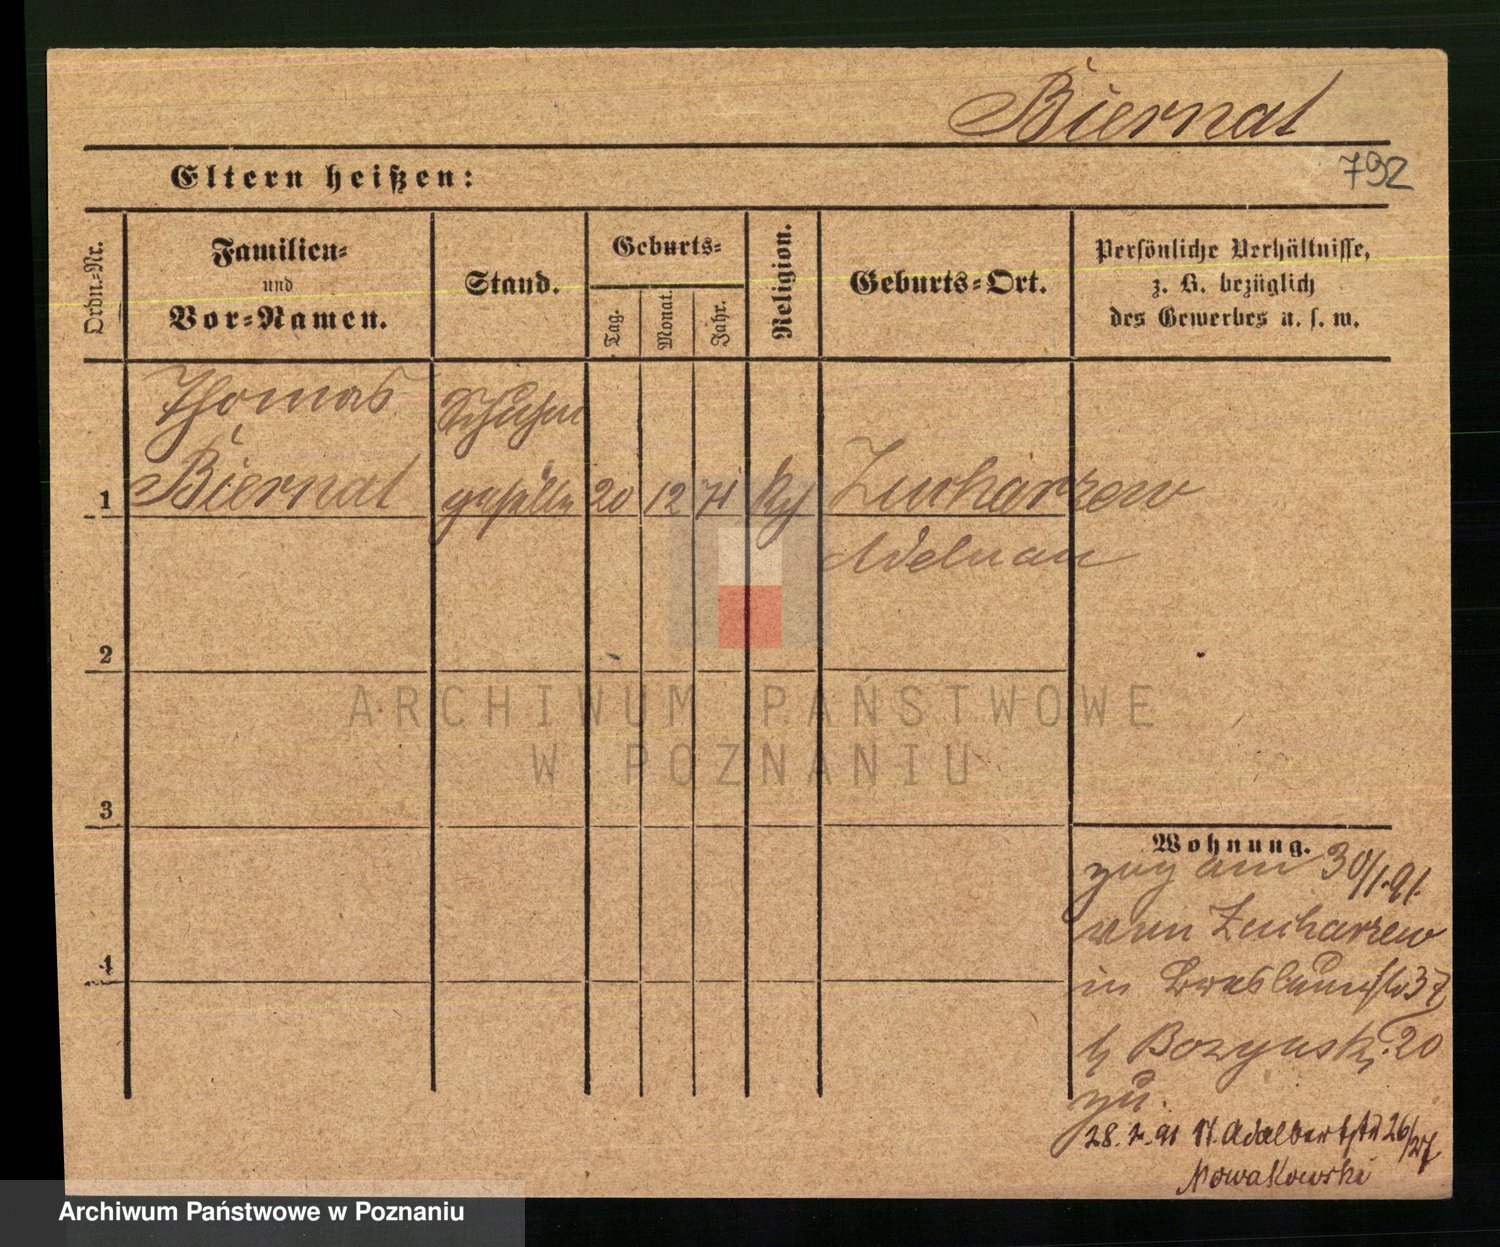 Biernat
792
Eltern heißen:
Ordn.-Nr.
Familien-
und
Vor-Namen.
Stand.
Geburts-
Tag.
Monat.
Jahr.
Religion.
Geburts-Ort.
Persönliche Verhältnisse,
z. B. bezüglich
des Gewerbes u. s. w.
Thomas
Biernat
Schuhm
geselle
1
20
12
71
Zucharzew
Adelnau
2
3
4
Wohnung.
zog am 30/1.91.
von Zucharzew
in 37
20
zu.
28. 91 Adalbertstr 26/27
Nowakowski
ARCHIWUM PAŃSTWOWE
W POZNANIU
Archiwum Państwowe w Poznaniu